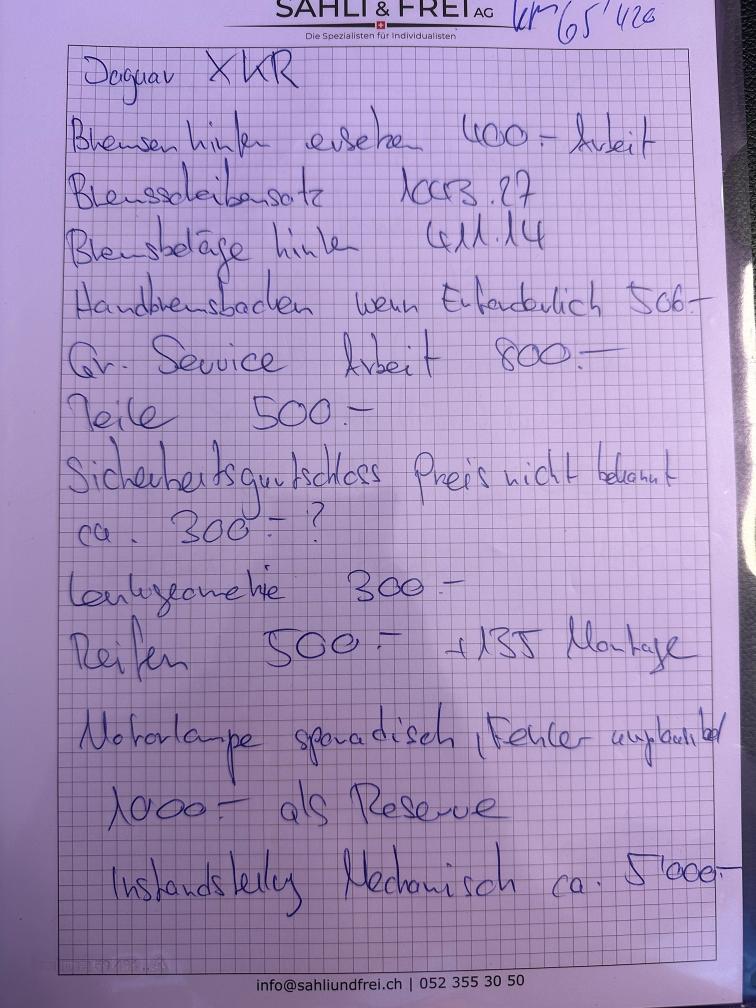 SAHLI & FREI AG
km 65'420
Die Spezialisten für Individualisten
Jaguar XKR
Bremsen hinten ersetzen 400.- Arbeit
Bremsscheibensatz 1003.27
Bremsbeläge hinten 411.14
Handbremsbacken wenn Erforderlich 506.-
Gr. Service Arbeit 800.-
Teile 500.-
Sicherheitsgurtschloss Preis nicht bekannt
ca. 300.- ?
Lenkgeometrie 300.-
Reifen 500.- +135 Montage
Motorlampe sporadisch, Fehler unplausibel
1000.- als Reserve
Instandstellung Mechanisch ca. 5'000.-
info@sahliundfrei.ch | 052 355 30 50